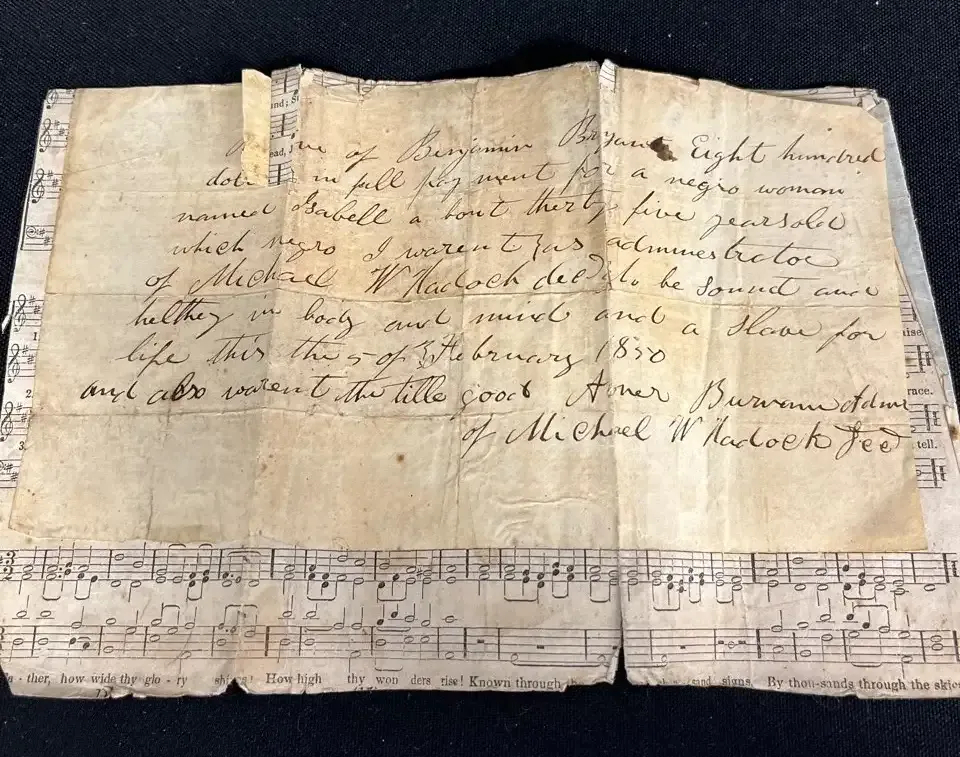 of Benjamin Bryant Eight hundred
in full pay ment for a negro woman
named Isabell a bout therty five years old
which negro I warent as administrator
of Michael W Hadock decd to be sound and
helthey in body and mind and a slave for
life this the 5 of February 1850
and also warent the title good Abner Admr
of Michael W Hadock Decd
nd; S
ead, J
1.
2.
3.
aise
nce.
tell.
ther, how wide thy glo - ry shines! How high thy won ders rise! Known through sand signs, By thou-sands through the skies